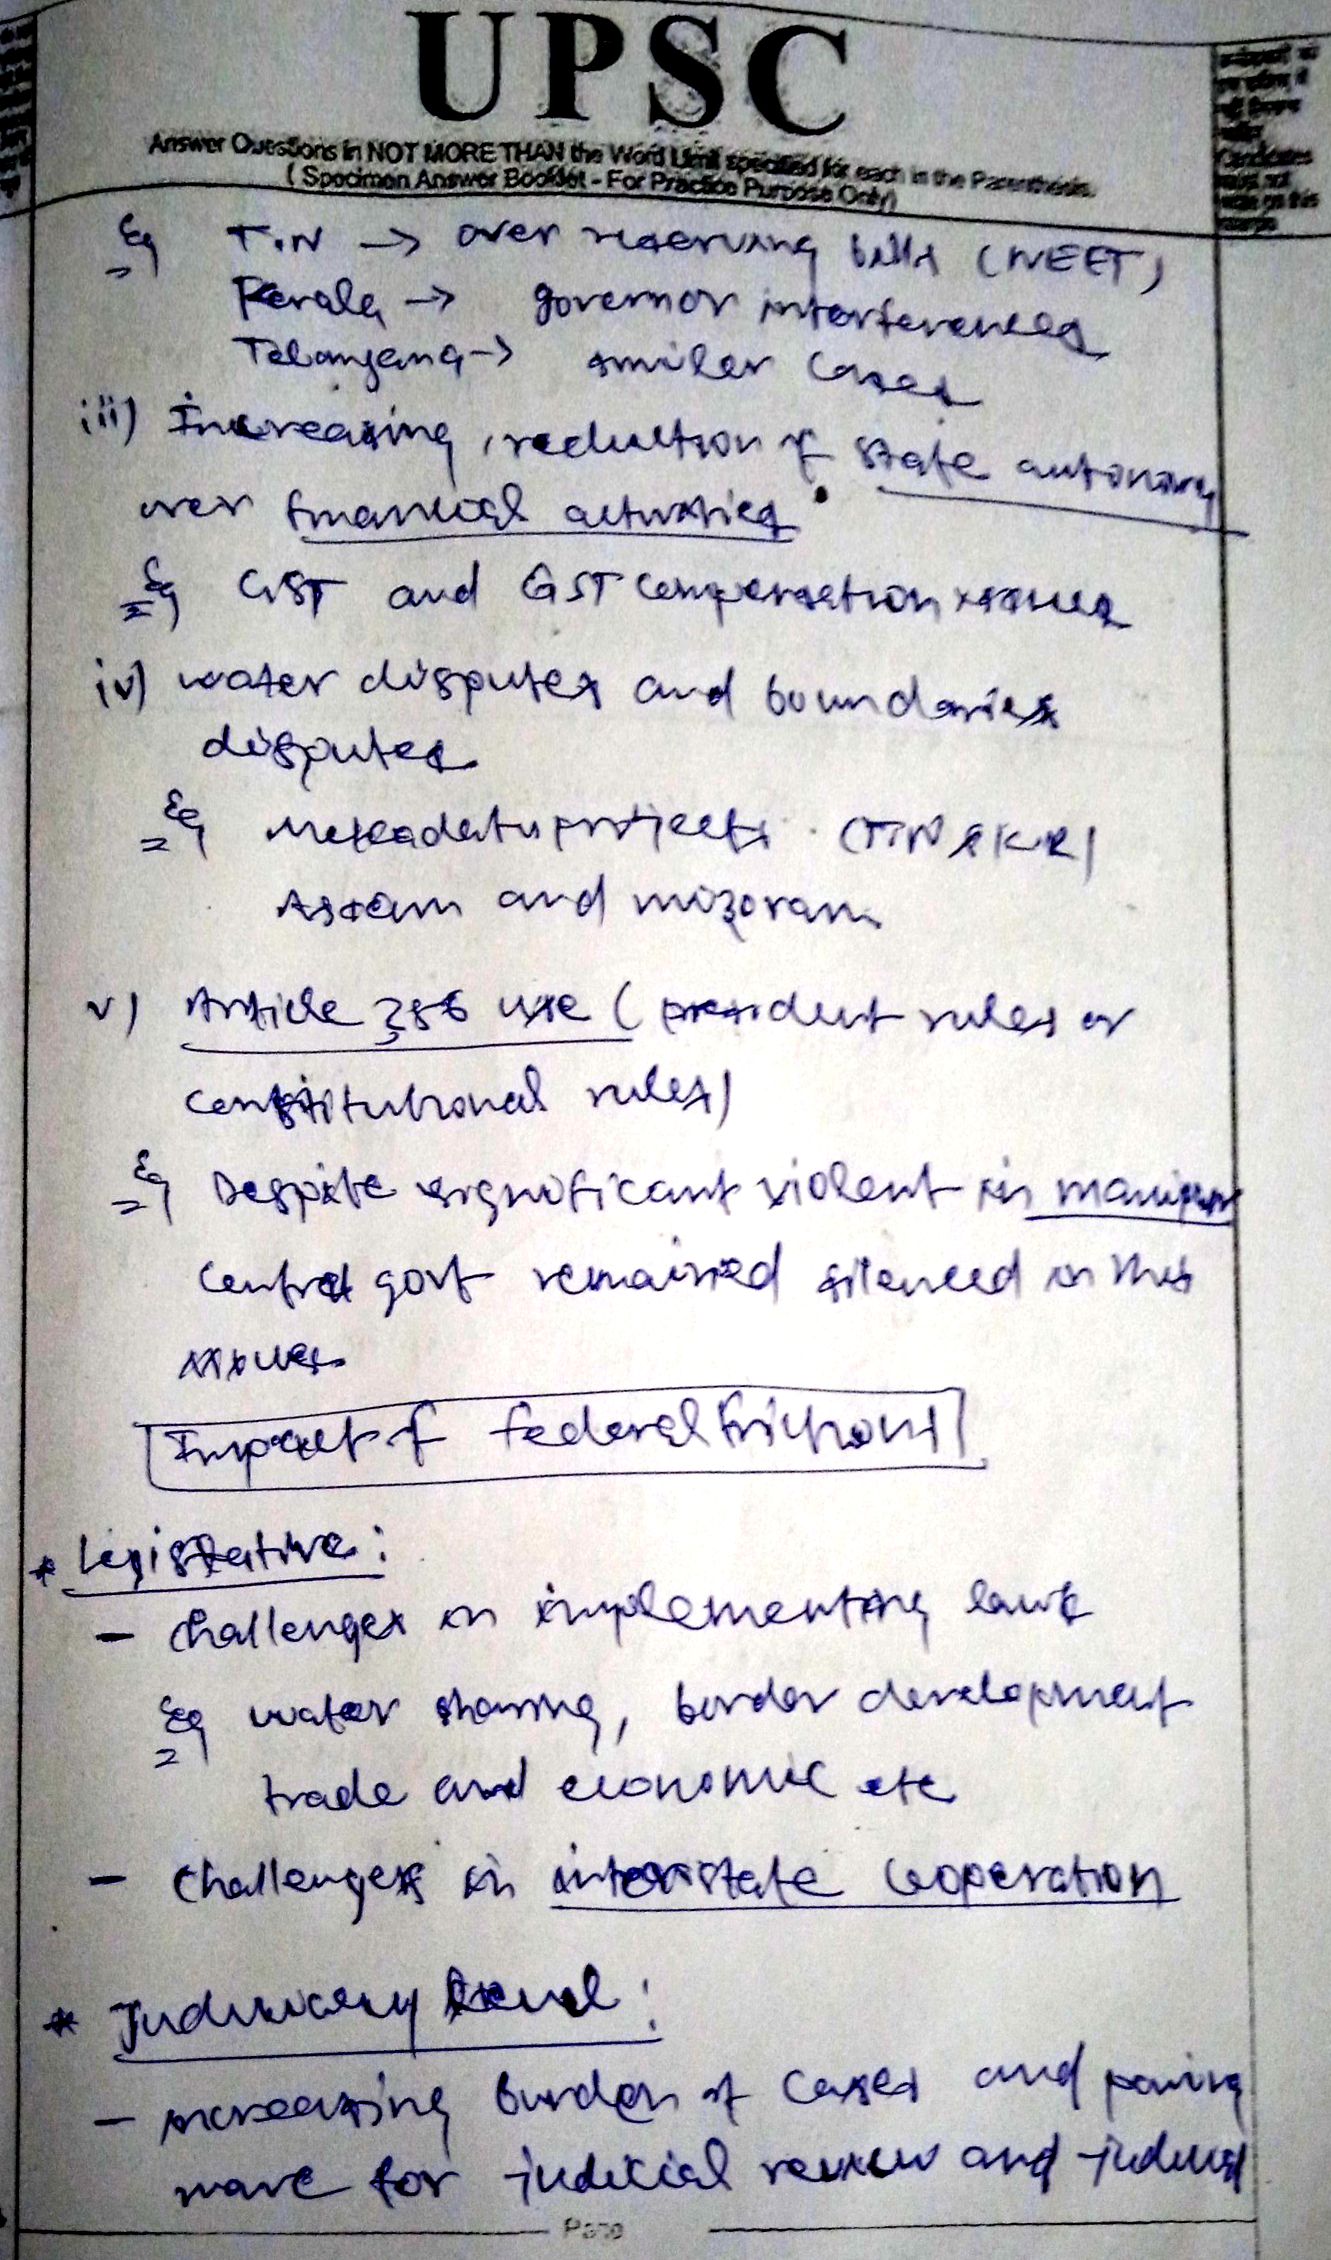 UPSC
Answer Questions in NOT MORE THAN the Word Limit specified for each in the Parenthesis.
( Specimen Answer Booklet - For Practice Purpose Only)
Candidates
must not
write on this
margin
Eg T.N → over reserving bills (NEET)
Kerala → governor interferences
Telangana → similar cases
iii) Increasing reduction of state autonomy
over financial activities
Eg GST and GST compensation issues
iv) water disputes and boundaries
disputes
Eg Mekadatu projects (TN & KR)
Assam and mizoram
v) Article 356 use (president rules or
constitutional rules)
Eg Despite significant violent in manipur
central govt remained silenced in this
issues
Impact of federal frictions
* Legislative:
- challenges in implementing laws
Eg water sharing, border development
trade and economic etc
- challenges in interstate cooperation
* Judiciary level:
- increasing burden of cases and paving
more for judicial review and judicial
Page